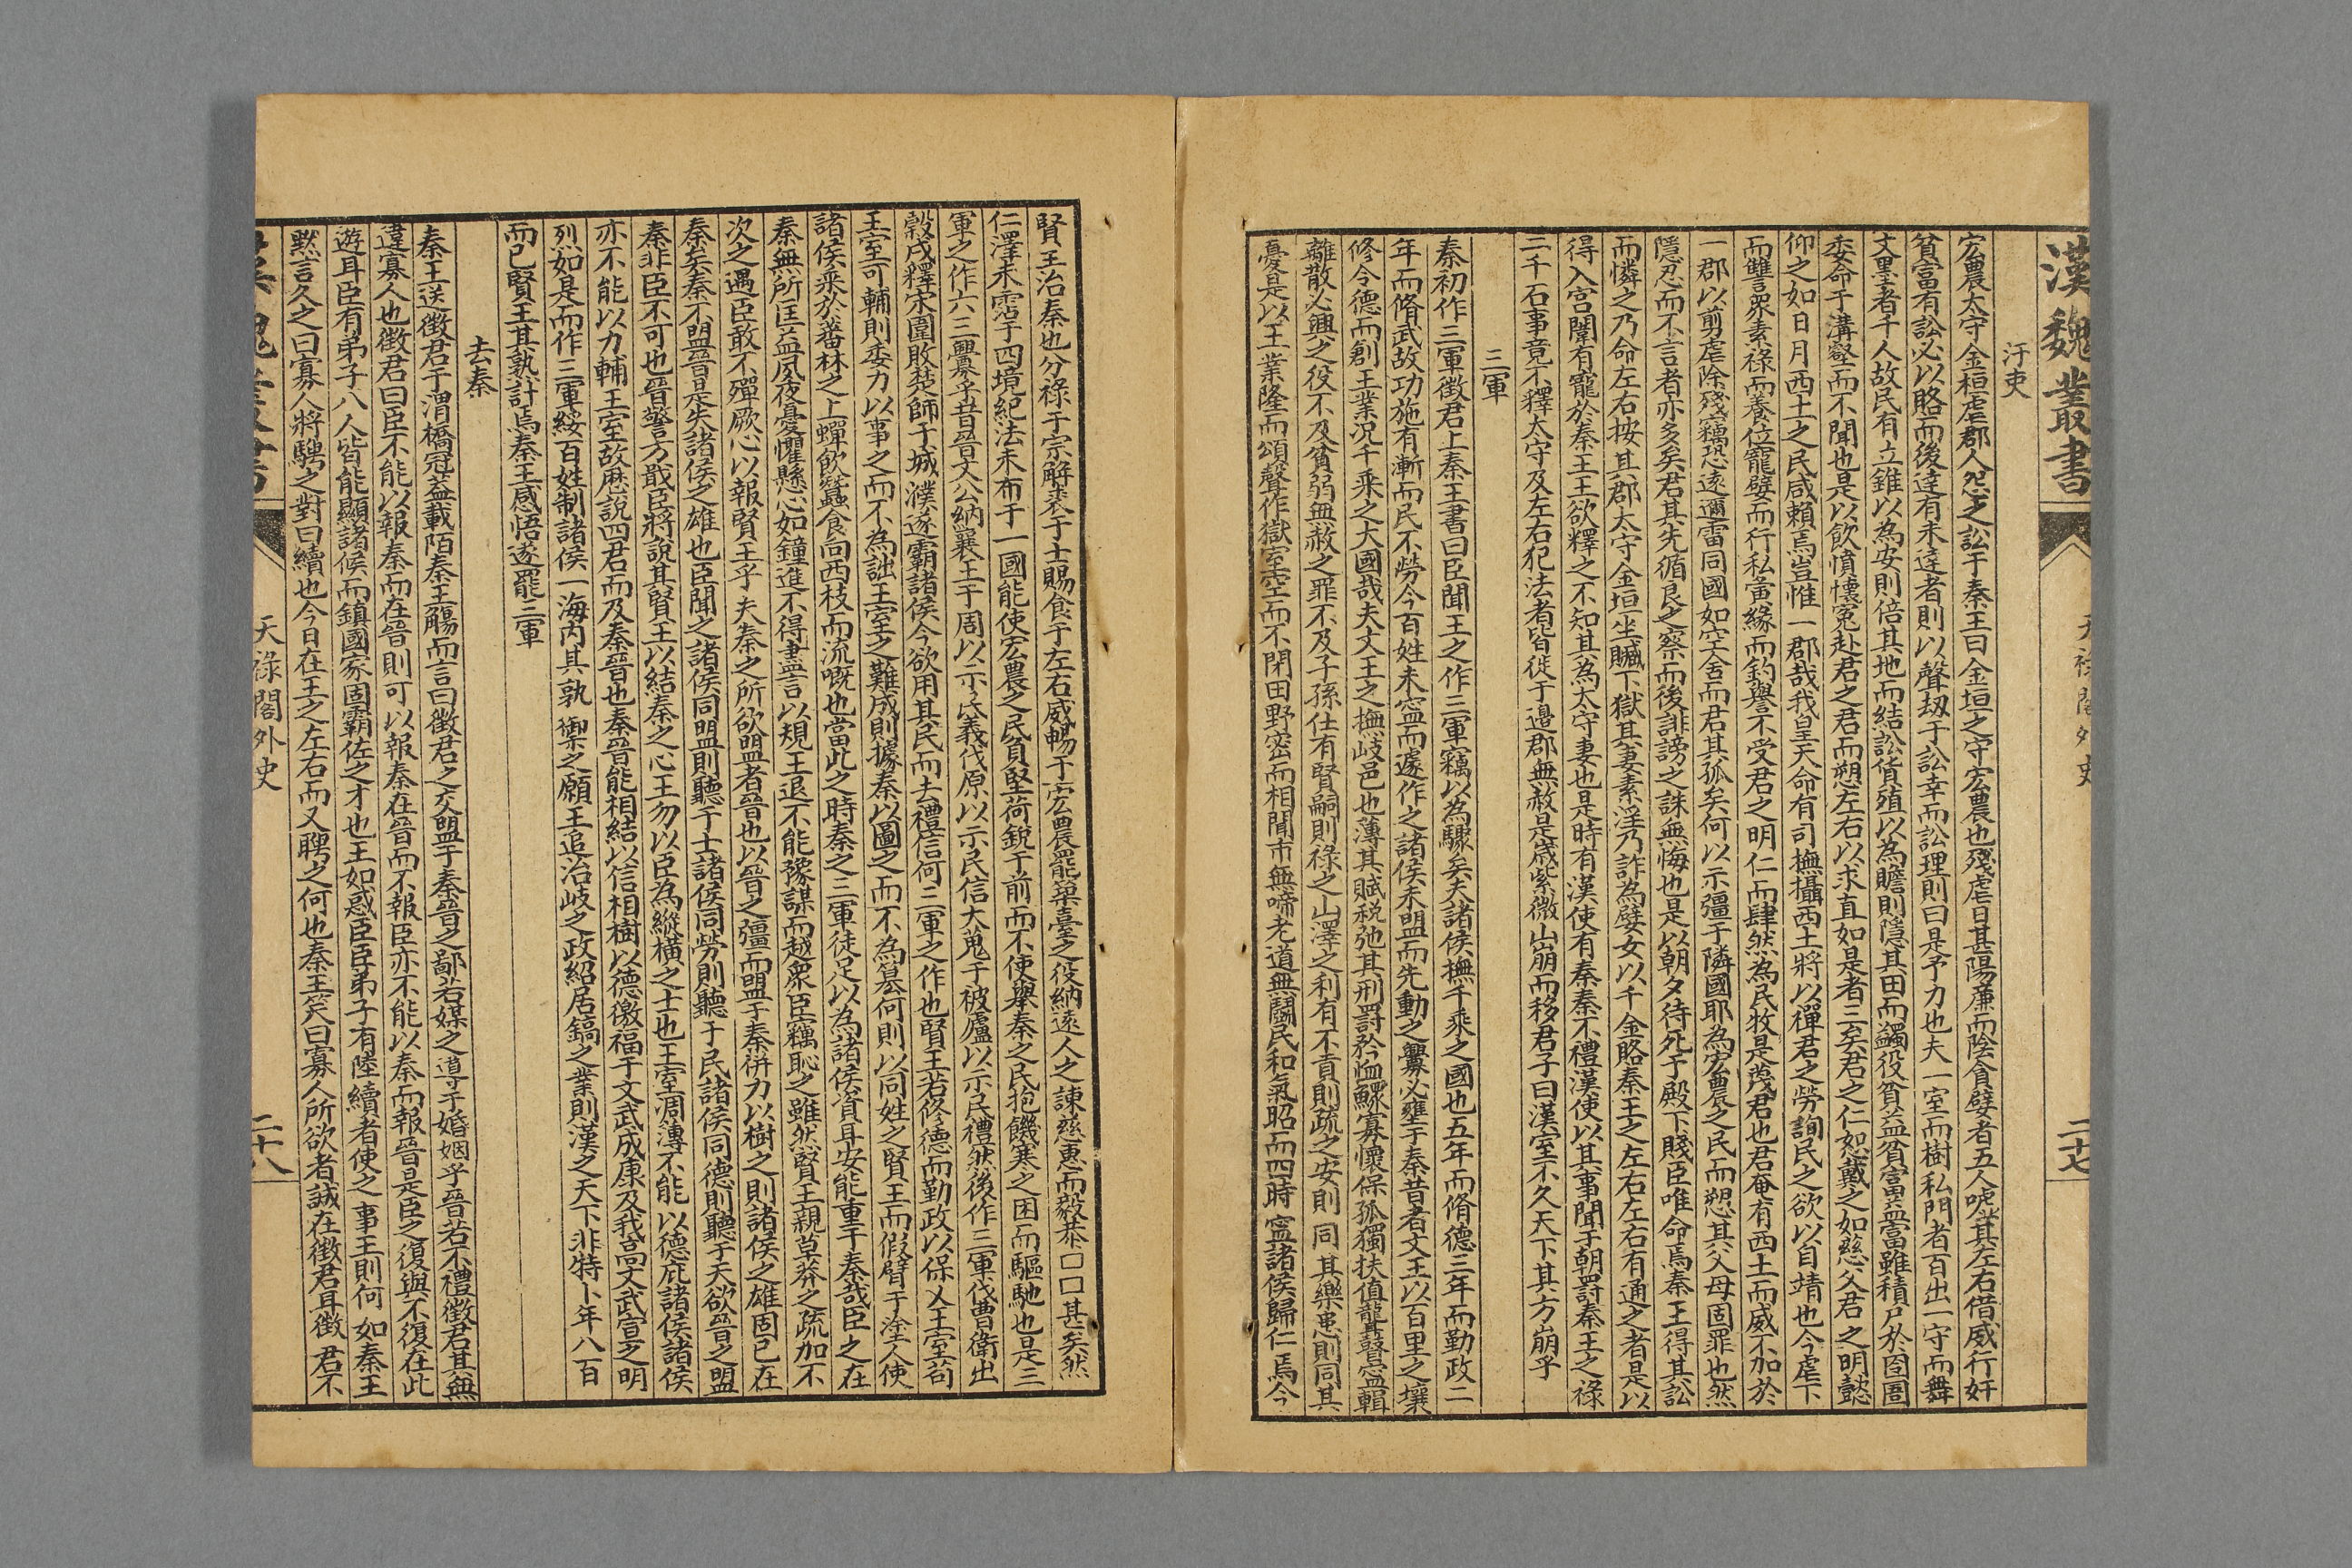 漢魏叢書
天祿閣外史
二十七
汙吏
宏農太守金桓虐郡人怨之訟于秦王曰金垣之守宏農也殘虐日甚陽廉而陰貪嬖者五人唬其左右借威行奸
貧富有訟必以賂而後達有未達者則以聲刼于訟幸而訟理則曰是予力也夫一室而樹私門者百出一守而舞
文墨者千人故民有立錐以為安則倍其地而結訟貨殖以為贍則隱其田而蠲役貧益貧富益富雖積尸於囹圄
委命于溝壑而不聞也是以飲憤懷冤赴君之君而愬左右以求直如是者三矣君之仁恕戴之如慈父君之明懿
仰之如日月西土之民咸賴焉豈惟一郡哉我皇天命有司撫攝西土將以禪君之勞詢民之欲以自靖也今虐下
而讐眾素祿而養位寵嬖而行私夤緣而釣譽不受君之明仁而肆然為民牧是蔑君也君奄有西土而威不加於
一郡以剪虐除殘竊恐遠邇雷同國如空舍而君其孤矣何以示彊于隣國耶為宏農之民而愬其父母固罪也然
隱忍而不言者亦多矣君其先循良之察而後誹謗之誅無悔也是以朝夕待死于殿下賤臣唯命焉秦王得其訟
而憐之乃命左右按其郡太守金垣坐贓下獄其妻素淫乃詐為嬖女以千金賂秦王之左右左右有通之者是以
得入宮闈有寵於秦王王欲釋之不知其為太守妻也是時有漢使有秦秦不禮漢使以其事聞于朝罸秦王之祿
二千石事竟不釋太守及左右犯法者皆徙于邉郡無赦是歲紫微山崩而移君子曰漢室不久天下其方崩乎
三軍
秦初作三軍徵君上秦王書曰臣聞王之作三軍竊以為驟矣夫諸侯撫千乘之國也五年而脩德三年而勤政二
年而脩武故功施有漸而民不勞今百姓未寍而遽作之諸侯未盟而先動之釁必壅于秦昔者文王以百里之壤
修令德而創王業況千乘之大國哉夫文王之撫岐邑也薄其賦税弛其刑罸矜恤鰥寡懷保孤獨扶值聾瞽寍輯
離散必興之役不及貧弱無赦之罪不及子孫仕有賢嗣則祿之山澤之利有不責則疏之安則同其樂患則同其
憂是以王業隆而頌聲作獄室空而不閉田野密而相聞市無啼老道無鬬民和氣昭而四時寍諸侯歸仁焉今
賢王治秦也分祿于宗解裘于士賜食于左右威暢于宏農罷築臺之役納遠人之諫慈惠而毅恭□□甚矣然
仁澤未霑于四境紀法未布于一國能使宏農之民負堅荷銳于前而不使舉秦之民抱饑寒之困而驅馳也是三
軍之作六三釁乎昔晉文公納襄王于周以示民義伐原以示民信大蒐于被廬以示民禮然後作三軍伐曹衛出
穀戍釋宋圍敗楚師于城濮遂霸諸侯今欲用其民而去禮信何三軍之作也賢王若修德而勤政以保乂王室苟
王室可輔則委力以事之而不為詘王室之難成則據秦以圖之而不為篡何則以同姓之賢王而假臂于塗人使
諸侯乘於蕃林之上蟬飲蠶食向西枝而流嘅也當此之時秦之三軍徒足以為諸侯資耳安能重于秦哉臣之在
秦無所匡益夙夜憂懼懸心如鐘進不得盡言以規王退不能豫謀而越衆臣竊恥之雖然賢王親草莽之疏加不
次之遇臣敢不殫厥心以報賢王乎夫秦之所欲盟者晉也以晉之彊而盟于秦併力以樹之則諸侯之雄固已在
秦矣秦不盟晉是失諸侯之雄也臣聞之諸侯同盟則聽于士諸侯同勞則聽于民諸侯同德則聽于天欲晉之盟
秦非臣不可也晉警方戢臣將說其賢王以結秦之心王勿以臣為縱橫之士也王室凋薄不能以德庇諸侯諸侯
亦不能以力輔王室故歷說四君而及秦晉也秦晉能相結以信相樹以德徼福于文武成康及我高文武宣之明
烈如是而作三軍綏百姓制諸侯一海内其孰禦之願王追治岐之政紹居鎬之業則漢之天下非特卜年八百
而已賢王其孰計焉秦王感悟遂罷三軍
去秦
秦王送徵君于渭橋冠葢載陌秦王觴而言曰徵君之交盟于秦晉之鄙若媒之導于婚姻乎晉若不禮徵君其無
違寡人也徵君曰臣不能以報秦而在晉則可以報秦在晉而不報臣亦不能以秦而報晉是臣之復與不復在此
遊耳臣有弟子八人皆能顯諸侯而鎮國家固霸佐之才也王如惑臣臣弟子有陸續者使之事王則何如秦王
默言久之曰寡人將騁之對曰續也今日在王之左右而又聘之何也秦王笑曰寡人所欲者誠在徵君耳徵君不
漢魏叢書
天祿閣外史
二十八